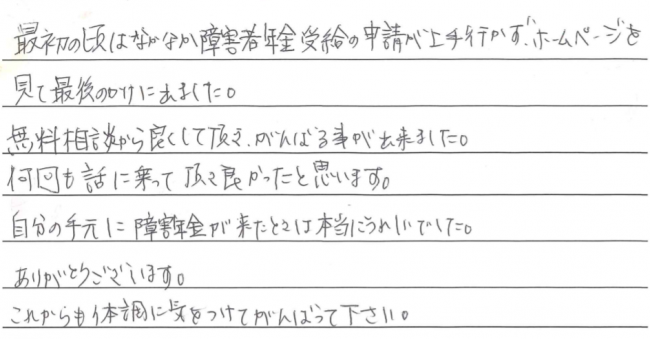 最初の頃はなかなか障害者年金受給の申請が上手行かず、ホームページを
見て最後のかけに出ました。
無料相談から良くして頂き、がんばる事が出来ました。
何回も話に乗って頂き良かったと思います。
自分の手元に障害年金が来たときは本当にうれしいでした。
ありがとうございます。
これからも体調に気をつけてがんばって下さい。